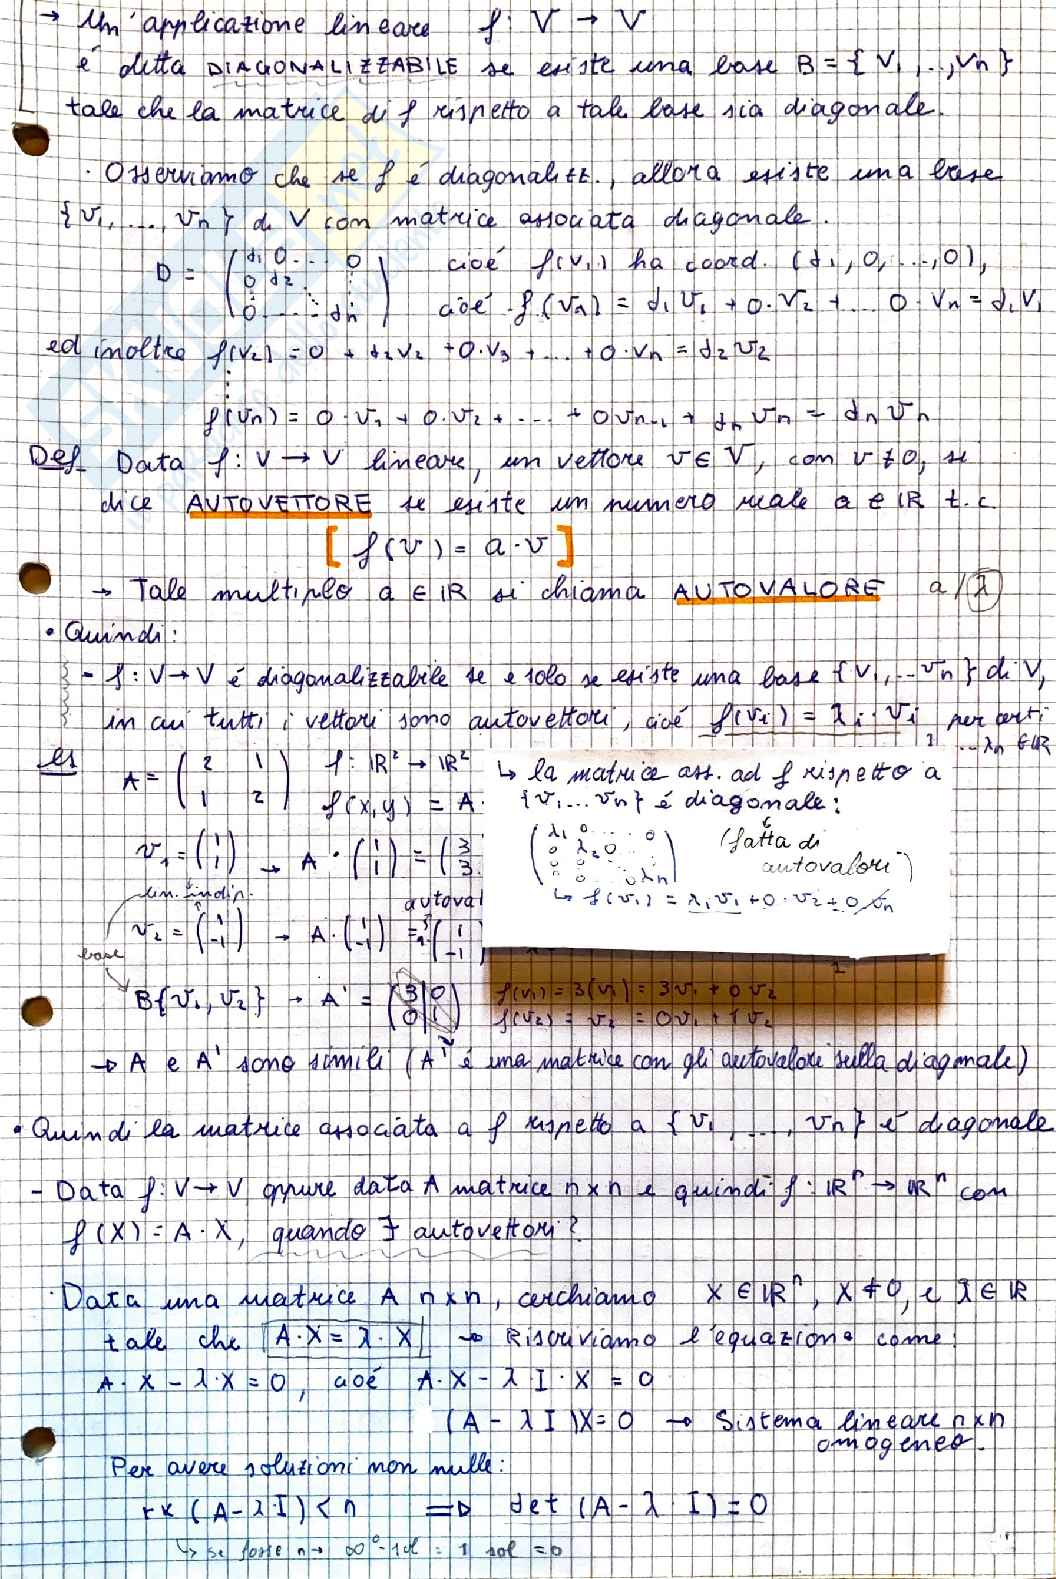 → Un'applicazione lineare f: V → V
é detta DIAGONALIZZABILE se esiste una base B = { V₁, .., Vn }
tale che la matrice di f rispetto a tale base sia diagonale.
· Osserviamo che se f é diagonalizz., allora esiste una base
{ v₁, ..., vn } di V con matrice associata diagonale.
D = ( d₁ 0 ... 0 cioé f(v₁) ha coord. (d₁, 0, ..., 0),
0 d₂
0 ... dn ) cioé f(vn) = d₁ v₁ + 0·v₂ + ... 0·vn = d₁v₁
ed inoltre f(v₂) = 0 + d₂v₂ + 0·v₃ + ... + 0·vn = d₂v₂
f(vn) = 0·v₁ + 0·v₂ + ... + 0vn-1 + dn vn = dn vn
Def Data f: V → V lineare, un vettore v ∈ V, con v ≠ 0, si
dice AUTOVETTORE se esiste un numero reale a ∈ IR t.c.
[ f(v) = a·v ]
→ Tale multiplo a ∈ IR si chiama AUTOVALORE a/λ
• Quindi:
- f: V→V é diagonalizzabile se e solo se esiste una base {v₁,...vn} di V,
in cui tutti i vettori sono autovettori, cioé f(vi) = λi·vi per certi
... λn ∈ IR
es A = ( 2 1 f: IR² → IR²
1 2 ) f(x,y) = A·
↳ la matrice ass. ad f rispetto a
{v₁...vn} é diagonale:
( λ₁ 0 ... 0
0 λ₂ 0
0 0 ... 0 λn )
(fatta di
autovalori)
↳ f(v₁) = λ₁v₁ + 0·v₂ + 0·vn
v₁ = (1 1) → A·(1 1) = (3 3
lin. indip.
autoval
v₂ = (1 -1) → A·(1 -1) = 1·(1 -1)
base
B{v₁, v₂} → A' = (3 0 f(v₁) = 3(v₁) = 3v₁ + 0v₂
0 1) f(v₂) = v₂ = 0v₁ + 1v₂
→ A e A' sono simili (A' é una matrice con gli autovalori sulla diagonale)
• Quindi la matrice associata a f rispetto a { v₁, ..., vn } é diagonale
- Data f: V→V oppure data A matrice n×n e quindi f: IRⁿ → IRⁿ con
f(X) = A·X, quando ∃ autovettori?
· Data una matrice A n×n, cerchiamo X ∈ IRⁿ, X ≠ 0, e λ ∈ IR
tale che A·X = λ·X → Riscriviamo l'equazione come:
A·X - λ·X = 0, cioé A·X - λ·I·X = 0
(A - λI)X = 0 → Sistema lineare n×n
omogeneo.
Per avere soluzioni non nulle:
rk (A - λI) < n => det (A - λ·I) = 0
↳ se fosse n → ∞⁰ sol = 1 sol = 0